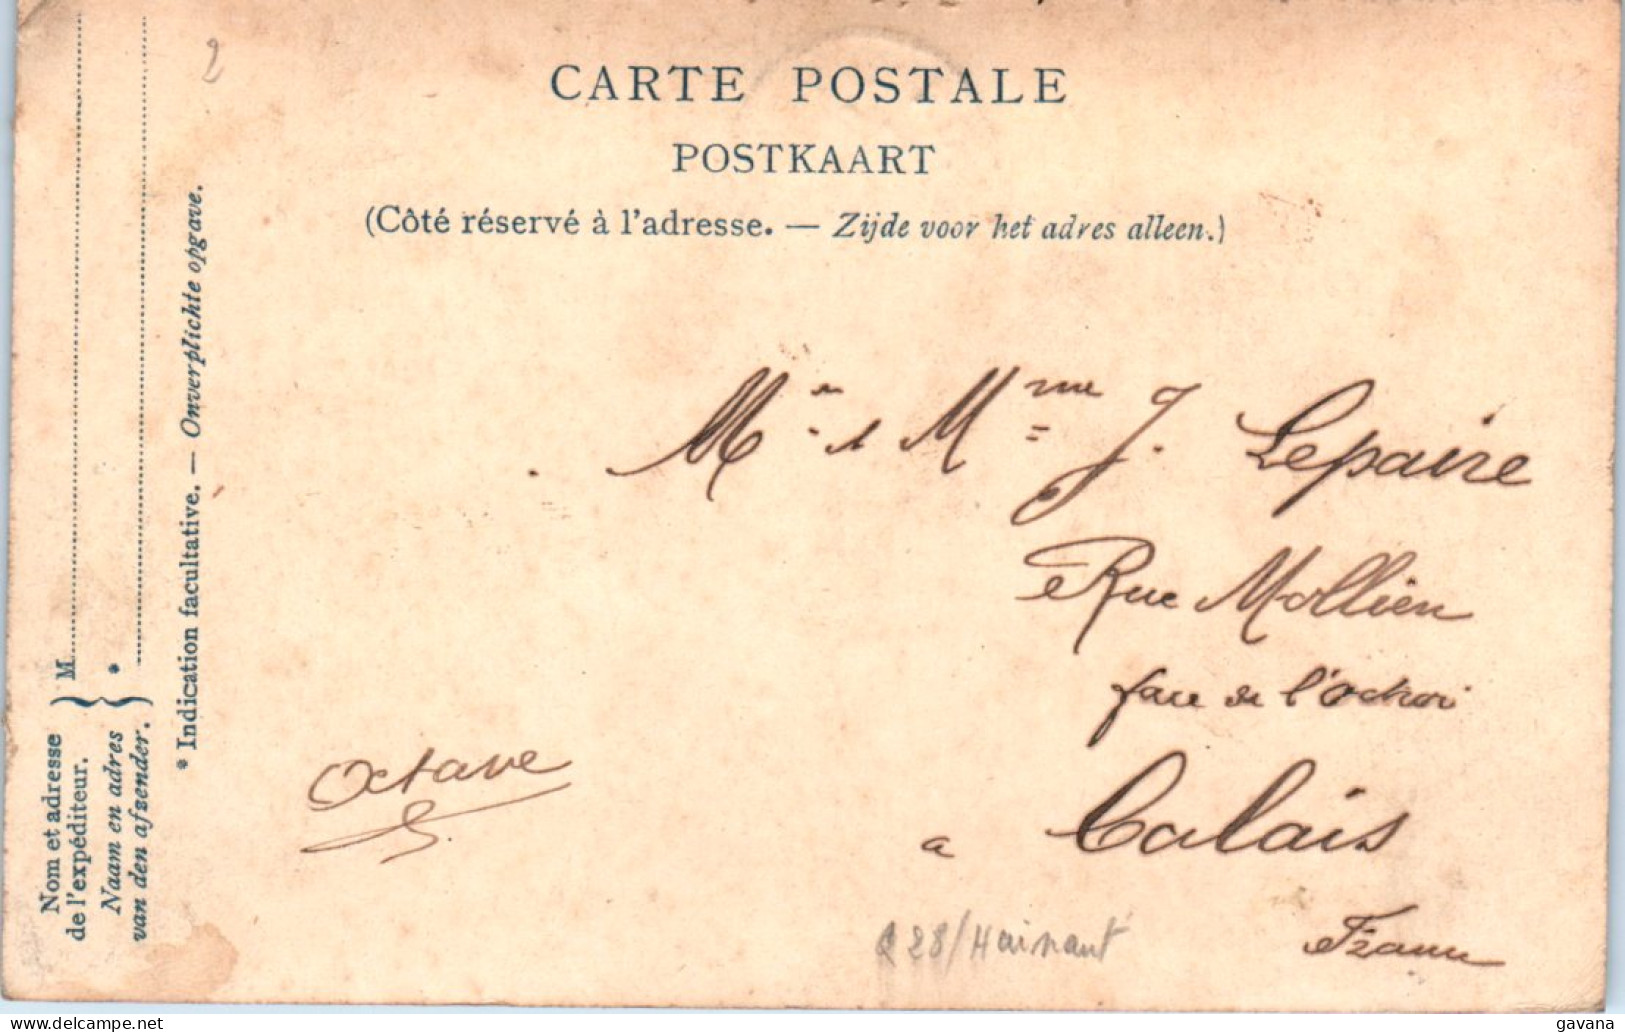 2
CARTE POSTALE
POSTKAART
(Côté réservé à l'adresse. — Zijde voor het adres alleen.)
Nom et adresse
de l'expéditeur.
Naam en adres
van den afzender.
M
*
* Indication facultative. — Onverplichte opgave.
M et Mme J. Lepaire
Rue Mollien
face de l'octroi
à Calais
France
Octave
28/Hainaut
delcampe.net
gavana